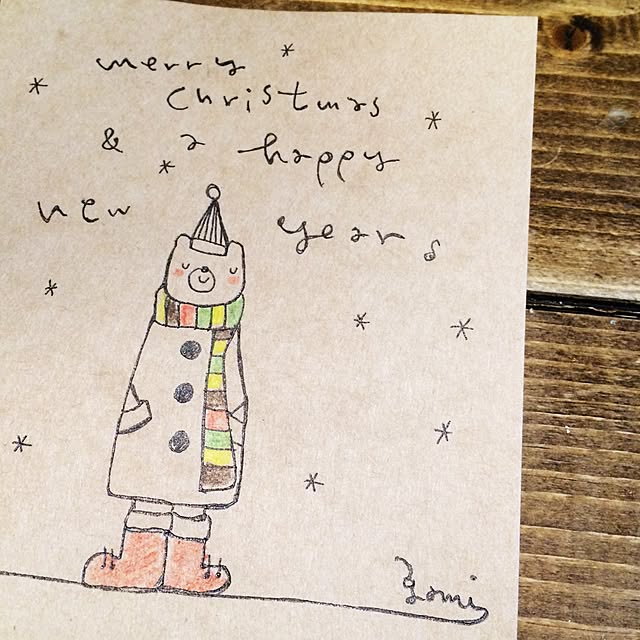 merry
christmas
& a happy
new year